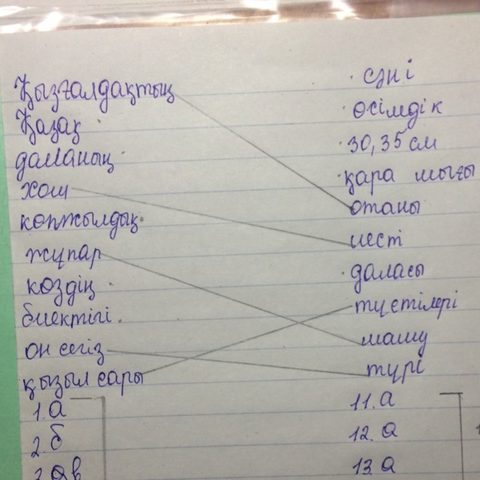 Қызғалдақтың
Қазақ
даланың
хош
көпжылдық
жұпар
көздің
биіктігі
он сегіз
қызыл сары
1. а
2. б
3. а в
сәні
өсімдік
30, 35 см
қара
отаны
иісті
даласы
түстілері
машу
түрі
11. а
12. а
13. а